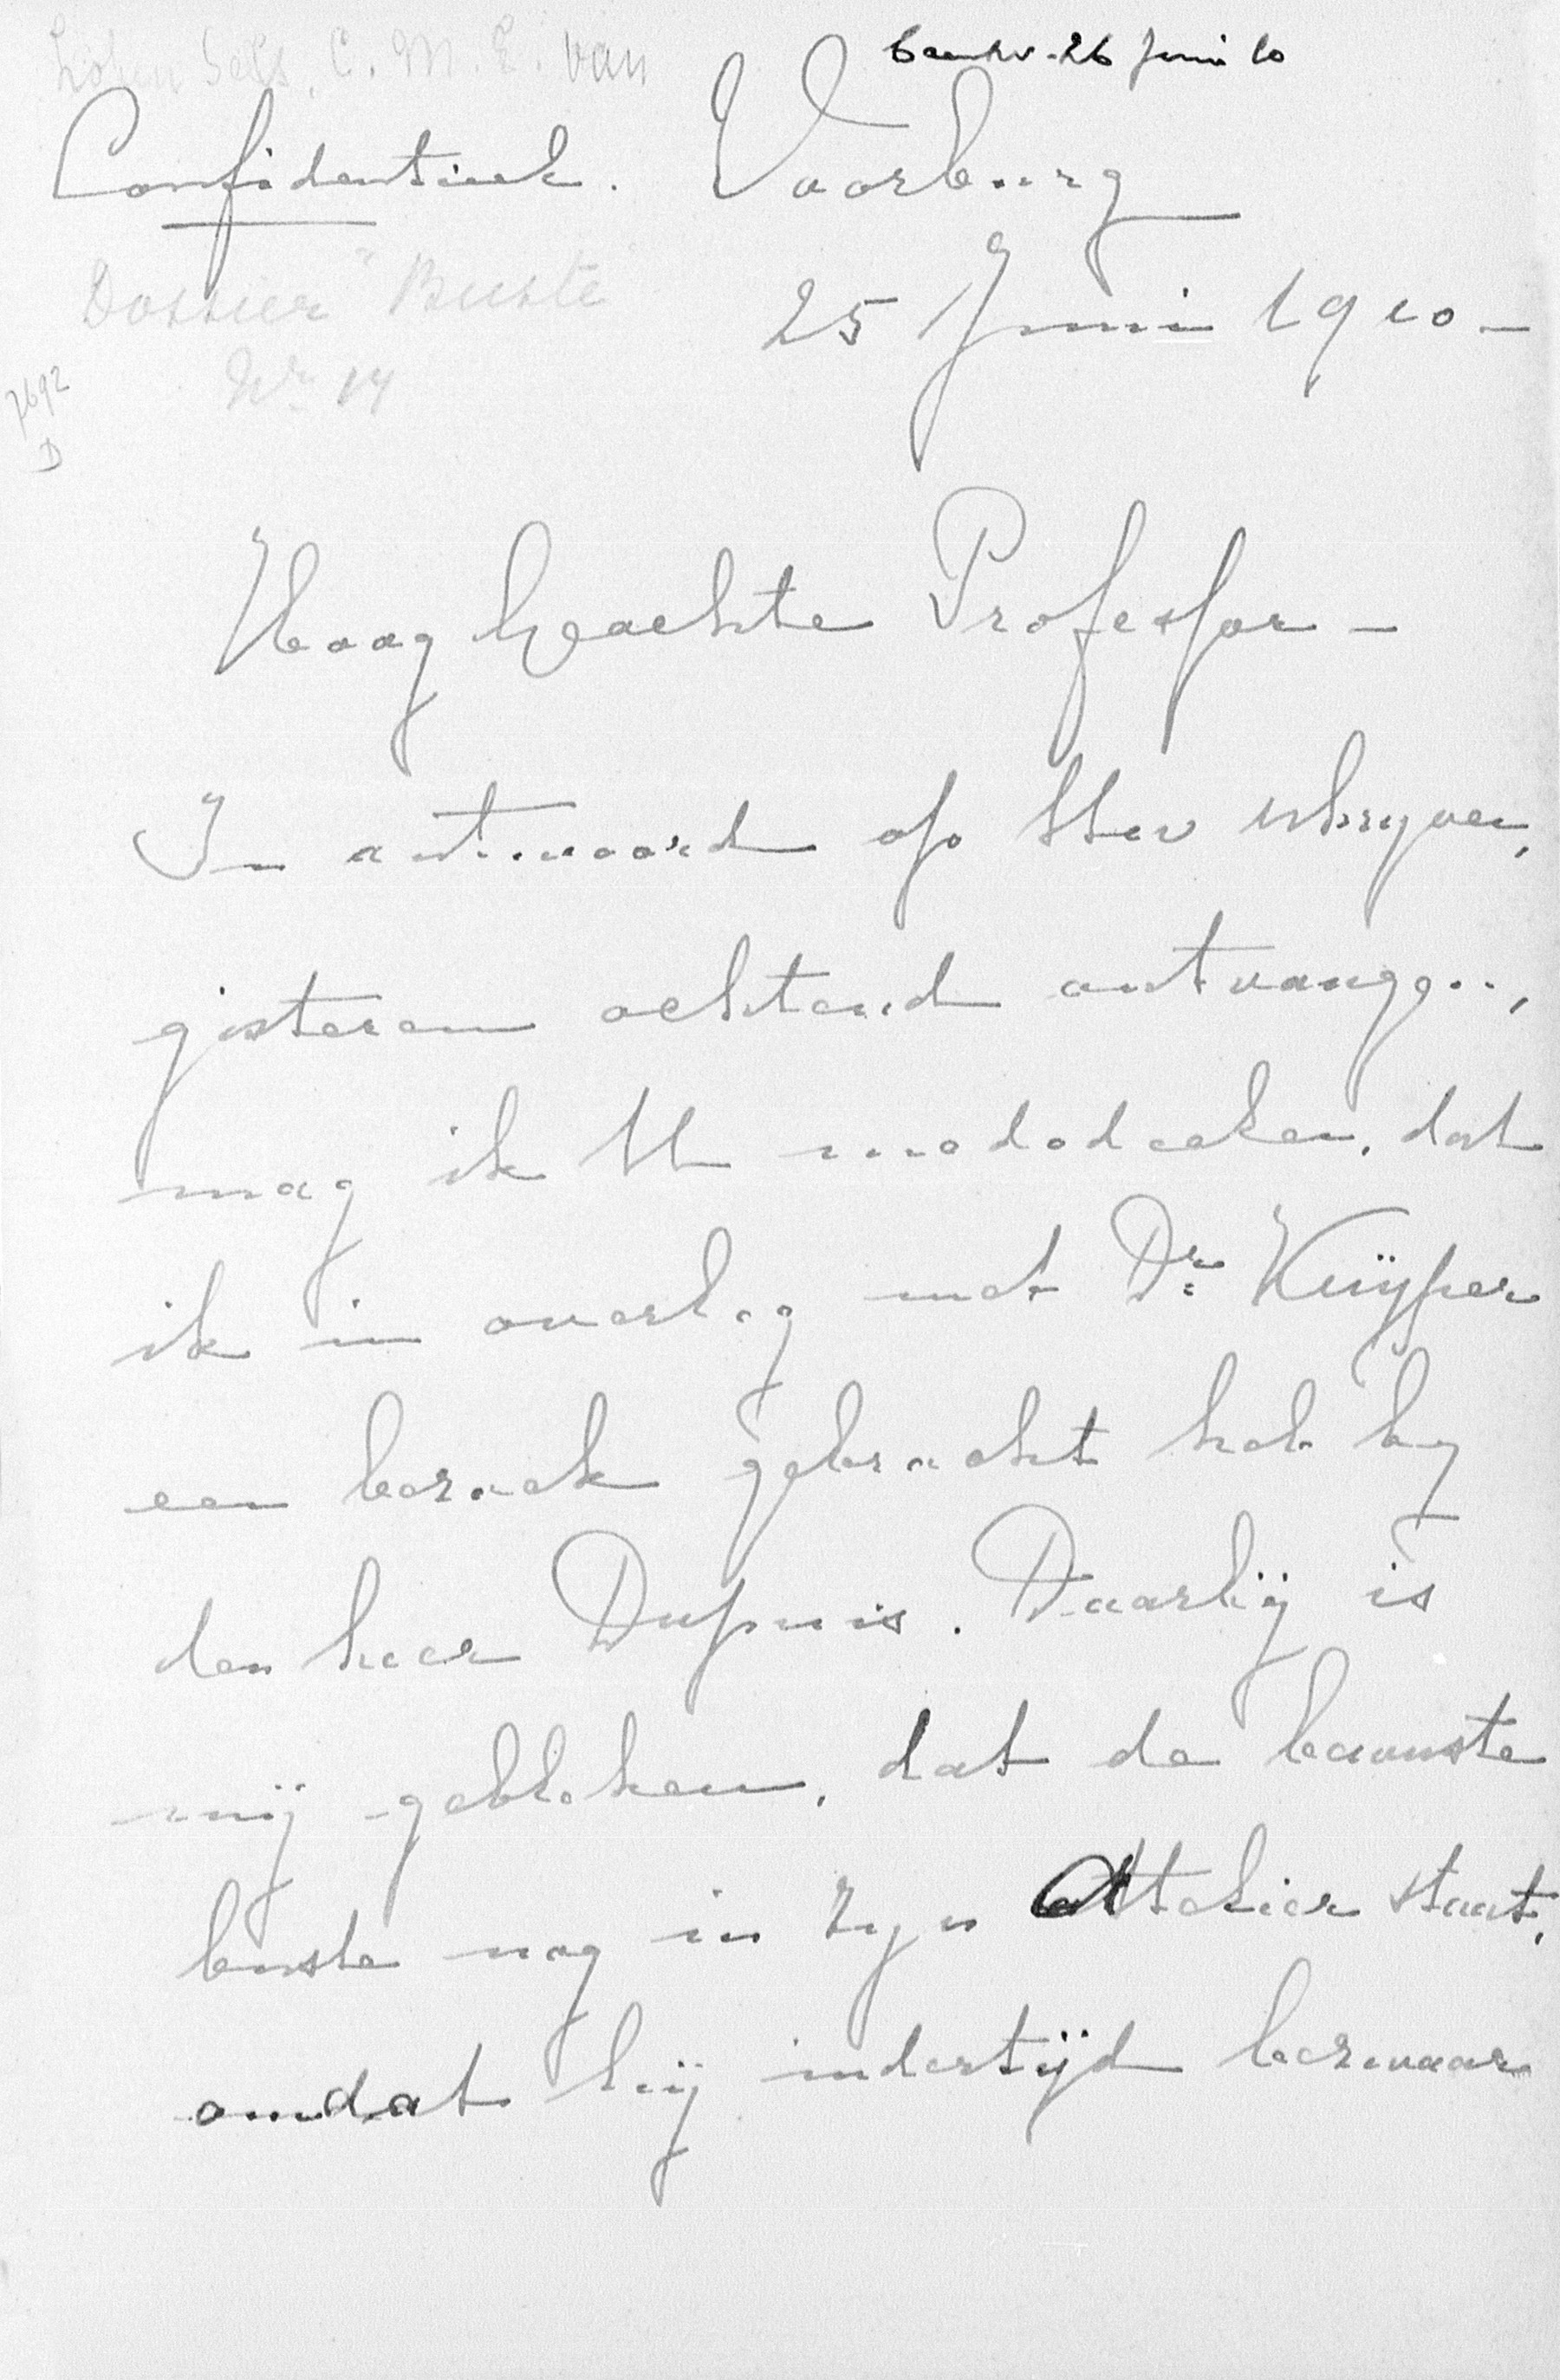 Löben Sels, C. M. E. van
beantw. 26 Juni 10
Confidentieel. Voorburg
Dossier "Buste"
25 Juni 1910 -
No 14
7692
D
Hoog Geachte Professor -
In antwoord op Uw schryven,
gisteren ochtend ontvangen,
mag ik U mededeelen, dat
ik in overleg met Dr. Kuÿper
een bezoek gebracht heb by
den heer Dupuis. Daarbij is
mij gebleken, dat de bewuste
buste nog in zyn Attelier staat,
omdat hij indertijd bezwaar